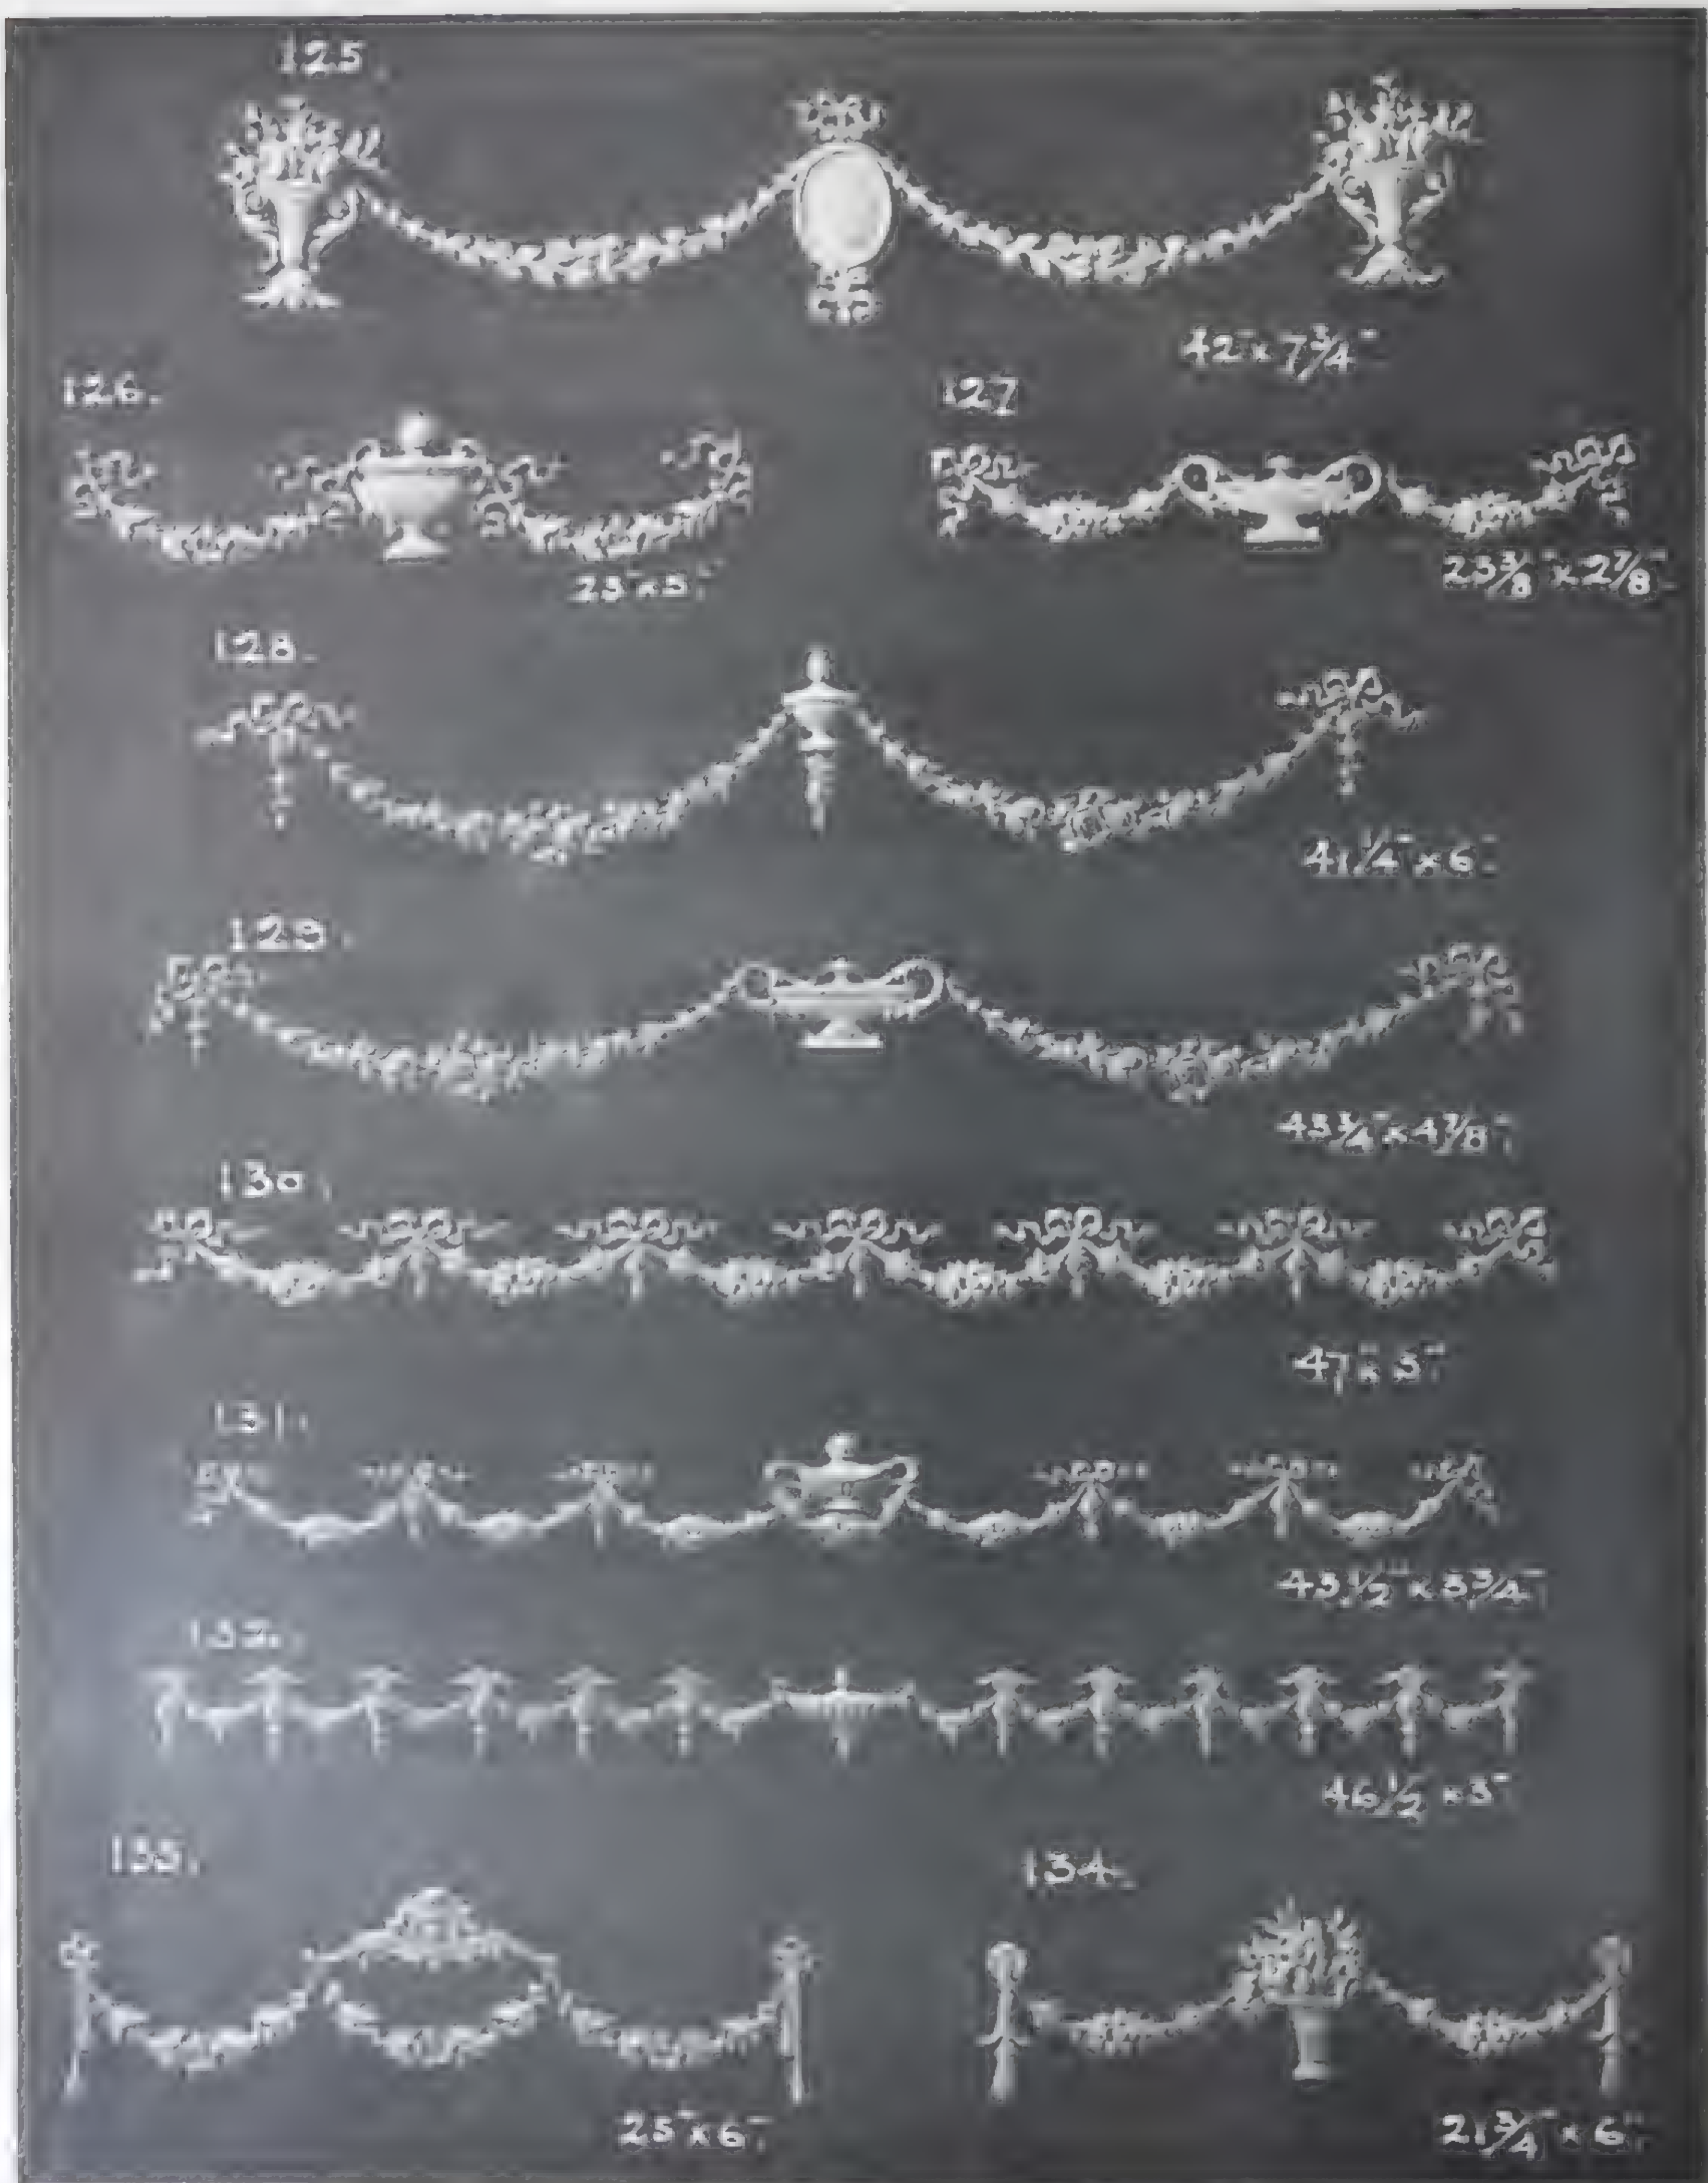 125.
42" x 7 3/4"
126.
127
23" x 5"
23 3/8" x 2 7/8"
128.
41 1/4" x 6"
129.
45 3/4" x 4 7/8"
130.
47" x 3"
131.
43 1/2" x 3 3/4"
132.
46 1/2" x 3"
133.
134.
25" x 6"
21 3/4" x 6"